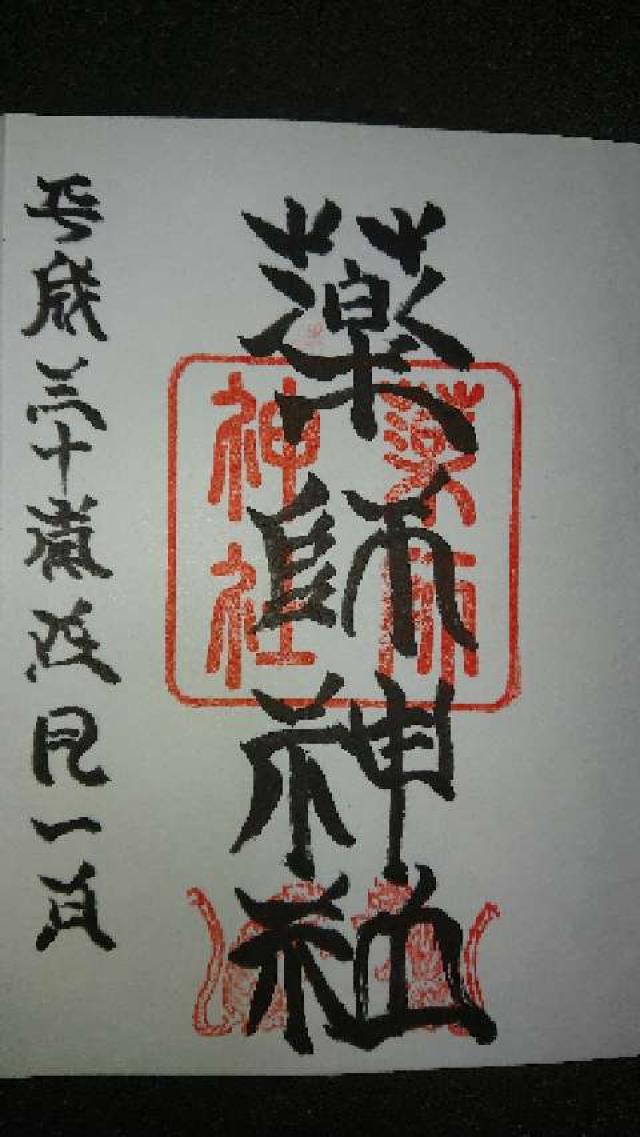 薬師神社
薬師
神社
平成三十歳弐月一日